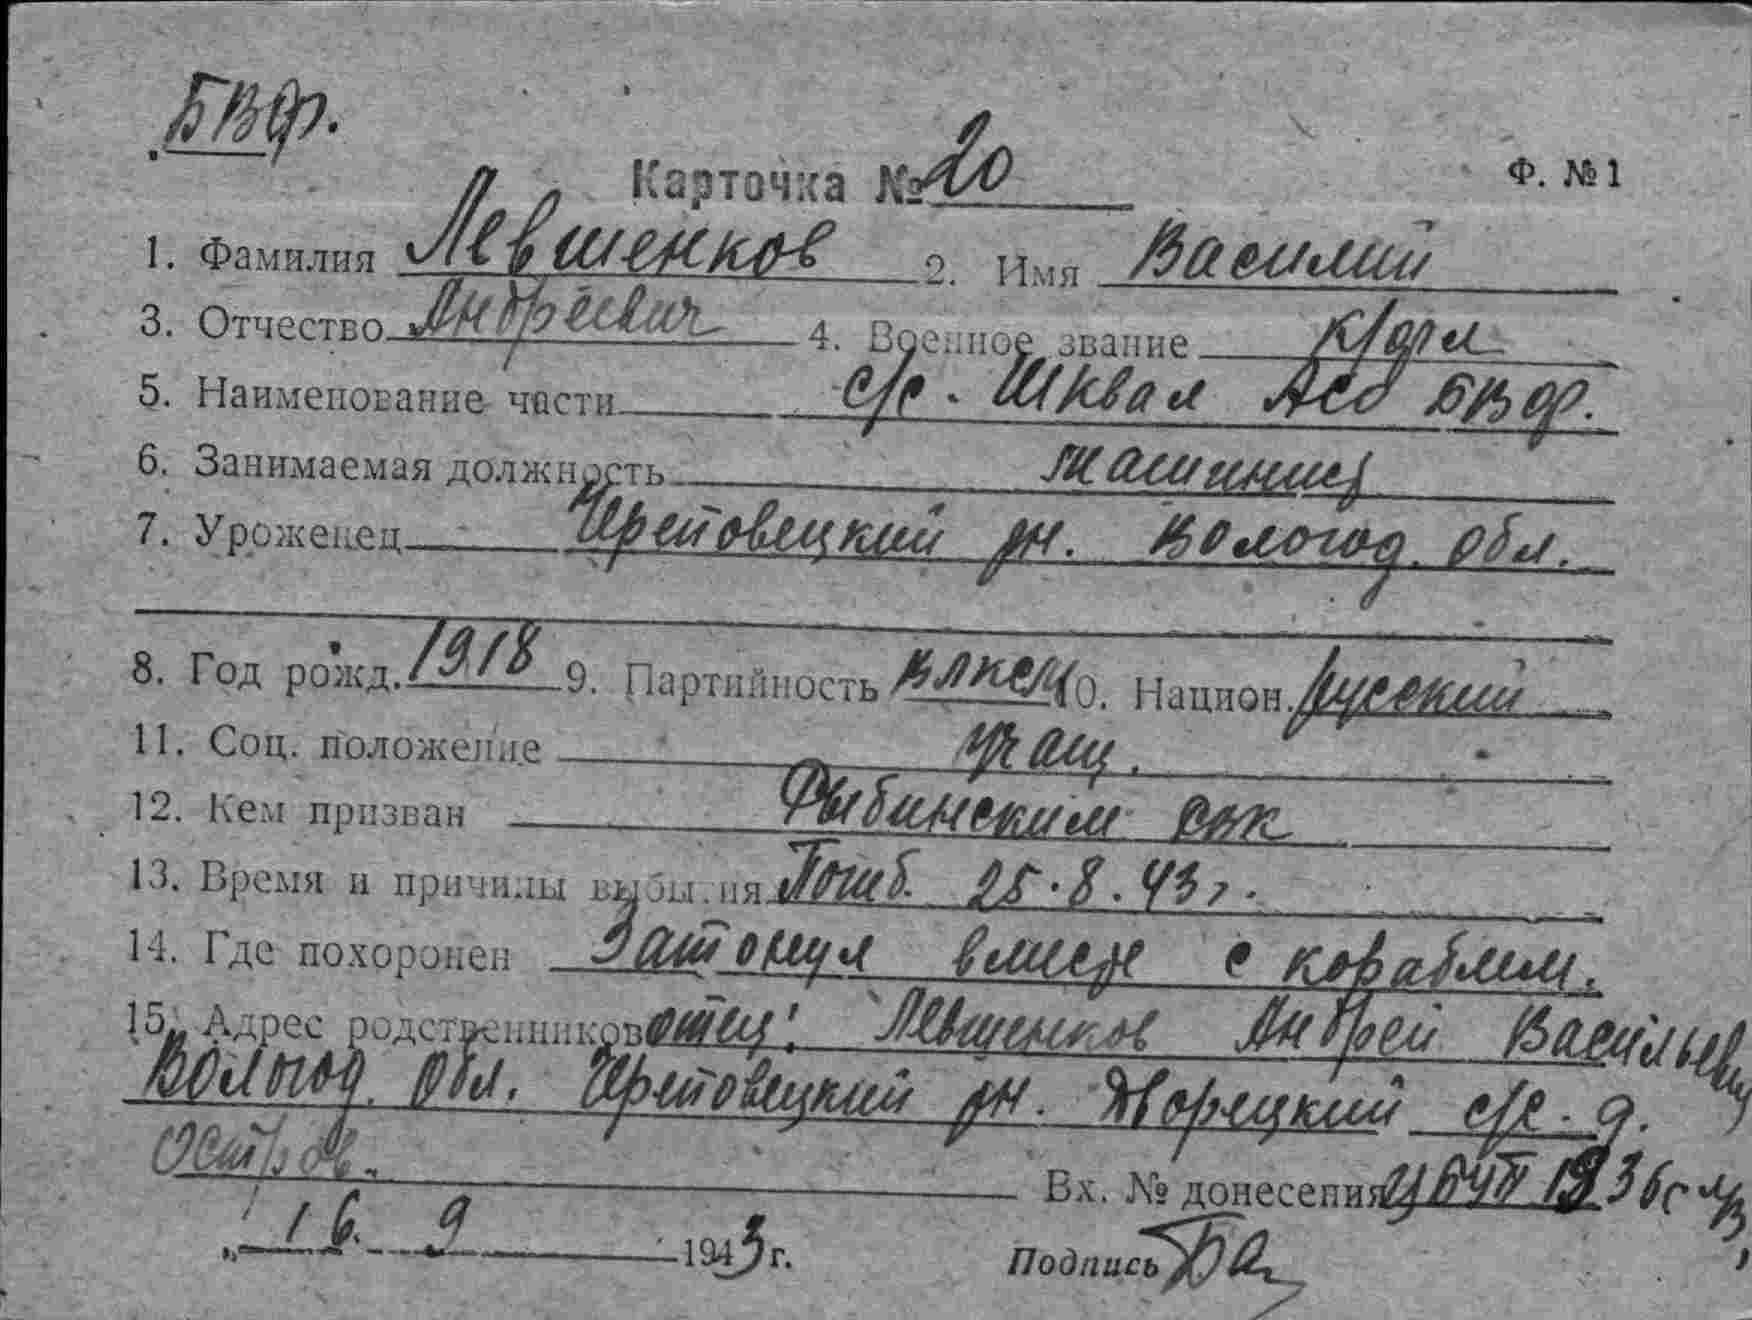 БВФ.
Карточка № 20 Ф. № 1
1. Фамилия Левшенков 2. Имя Василий
3. Отчество Андреевич 4. Военное звание к/фл
5. Наименование части с/с. Шквал БВФ.
6. Занимаемая должность машинист
7. Уроженец Череповецкий рн. Вологод. обл.
8. Год рожд. 1918 9. Партийность ВЛКСМ 10. Национ. русский
11. Соц. положение учащ.
12. Кем призван Рыбинским РВК
13. Время и причины выбытия Погиб. 25.8.43 г.
14. Где похоронен Затонул вместе с кораблем.
15. Адрес родственников отец: Левшенков Андрей Васильевич
Вологод. обл. Череповецкий рн. с/с. д.
Остров.
Вх. № донесения
„ 16. 9 1943 г. Подпись